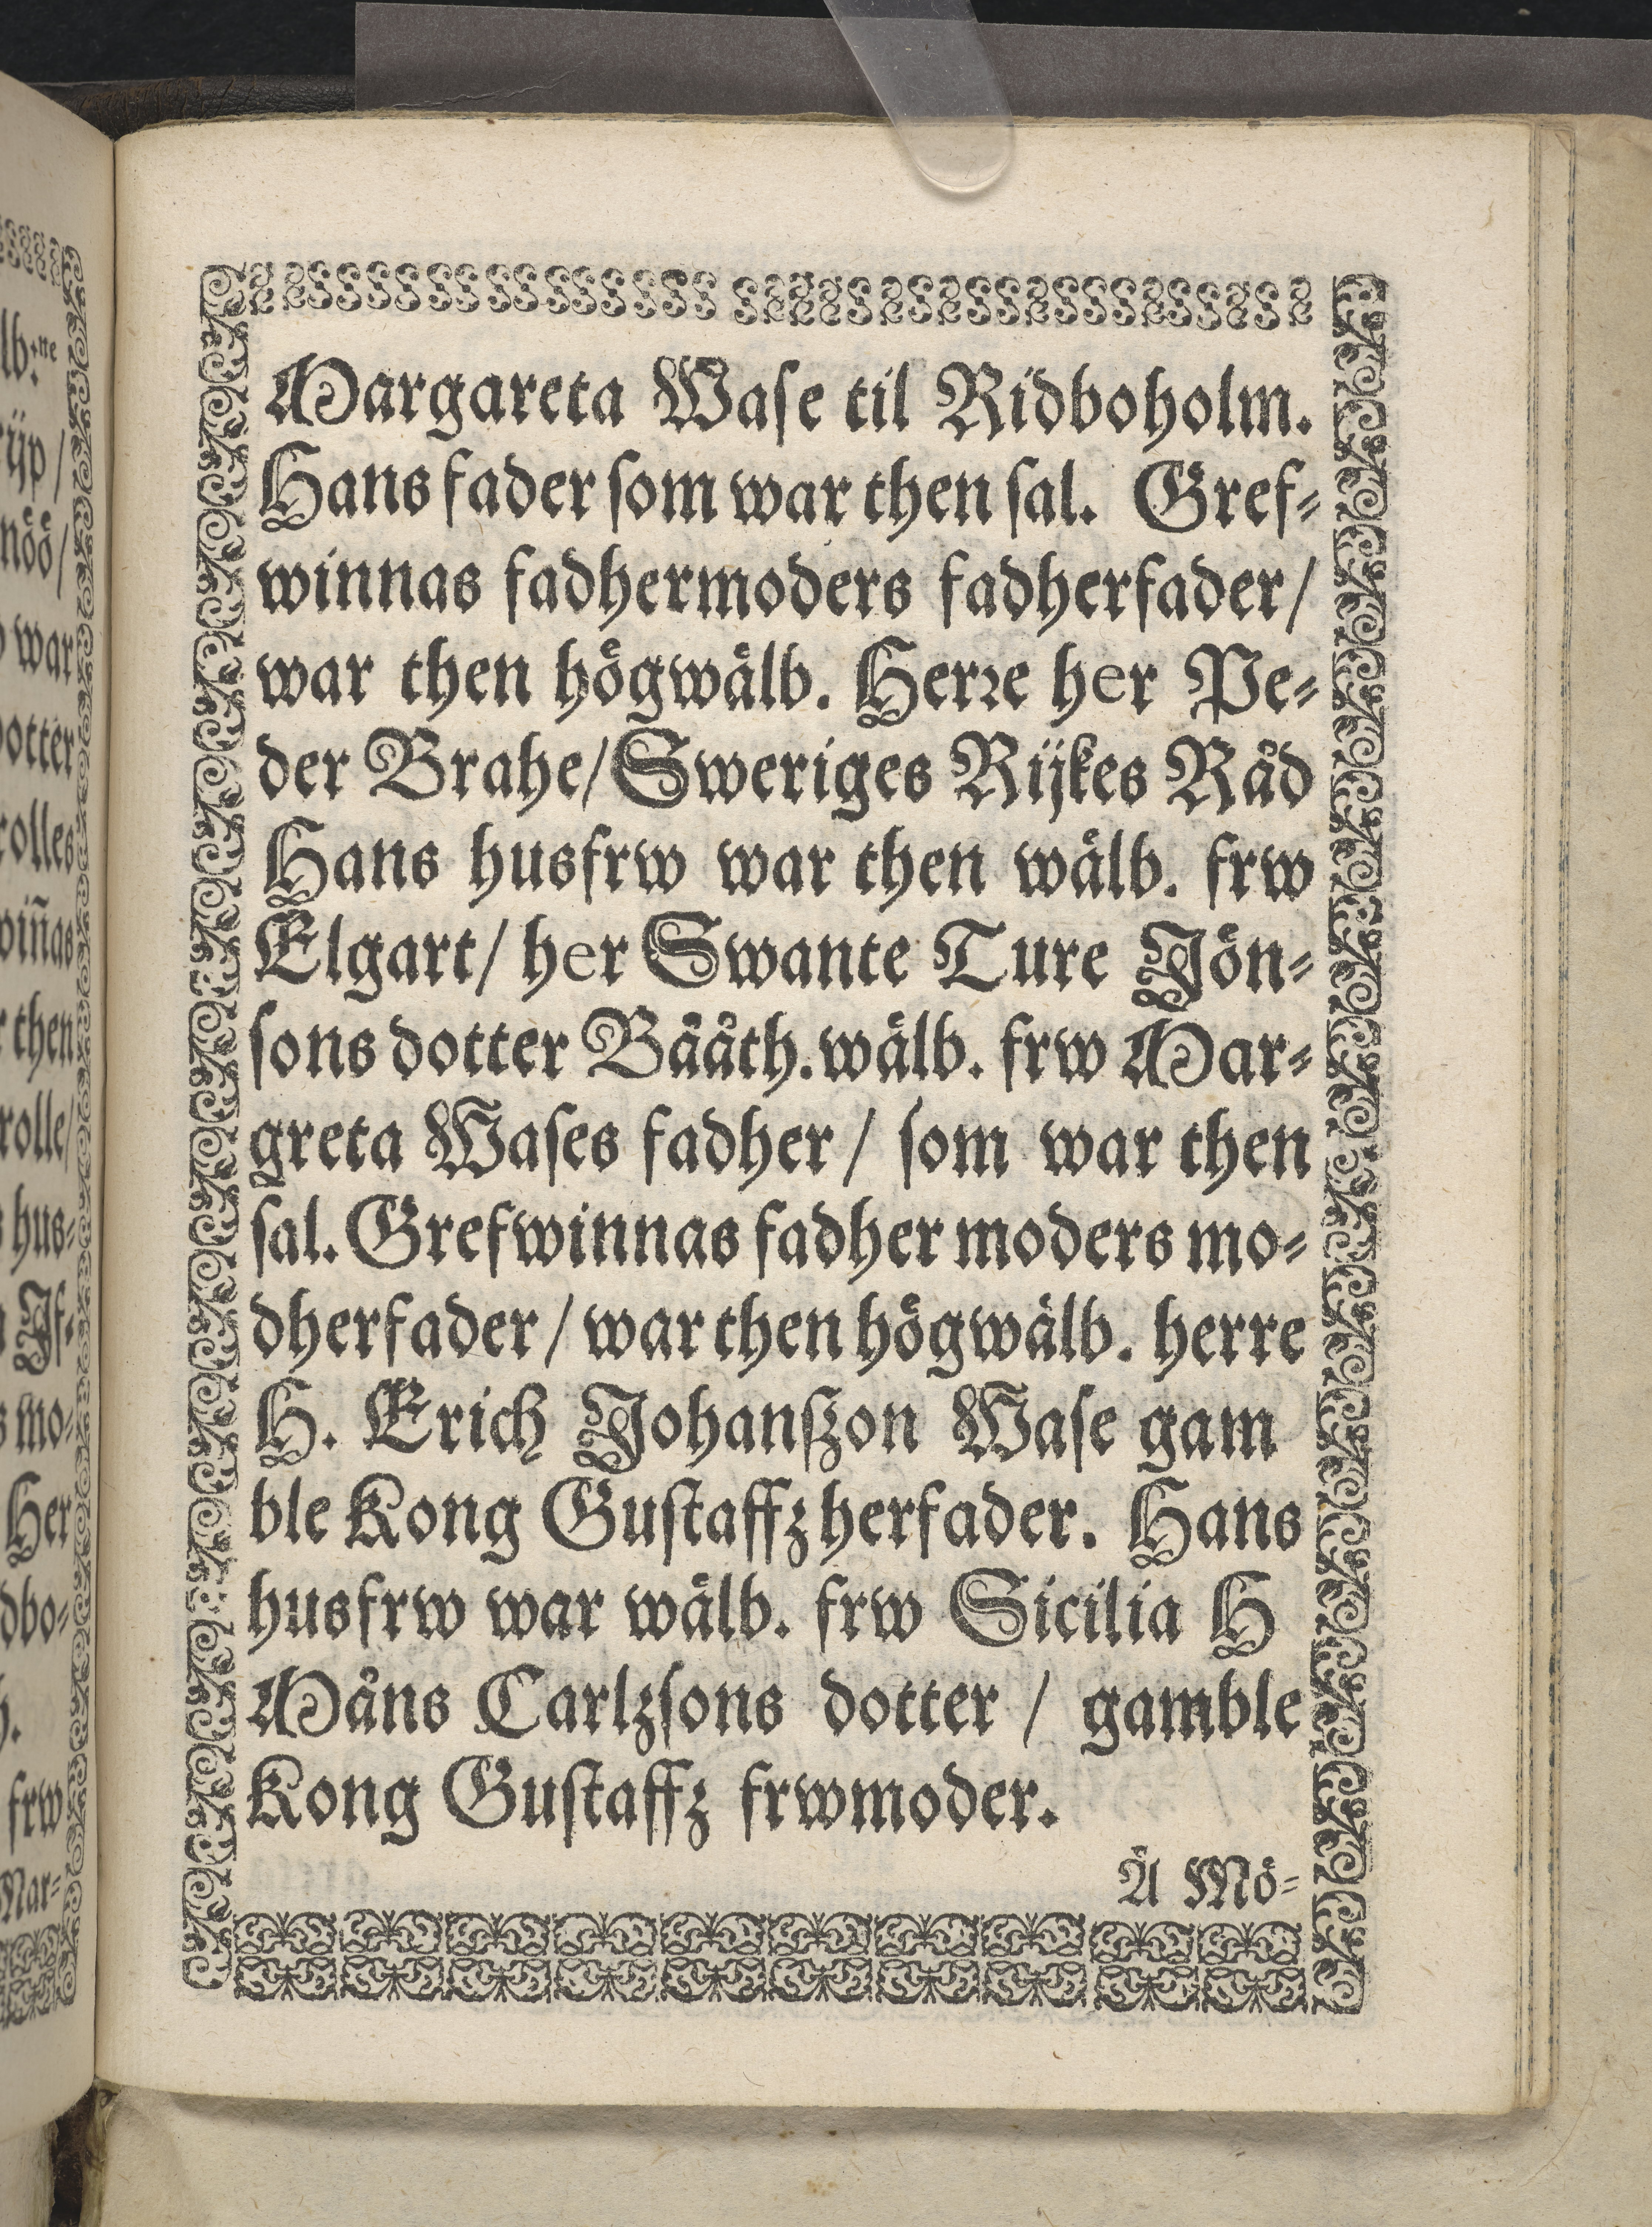 Margareta Wase til Ridboholm.
Hans fader som war then sal. Gref-
winnas fadhermoders fadherfader/
war then högwälb. Herre her Pe-
der Brahe/ Sweriges Rijkes Råd
Hans husfrw war then wälb. frw
Elgart/ her Swante Ture Jön-
sons dotter Bååth. wälb. frw Mar-
greta Wases fadher/ som war then
sal. Grefwinnas fadher moders mo-
dherfader/ war then högwälb. herre
H. Erich Johanßzon Wase gam
ble Kong Gustaffz herfader. Hans
husfrw war wälb. frw Sicilia H
Måns Carlzsons dotter / gamble
Kong Gustaffz frwmoder.
Å Mö-